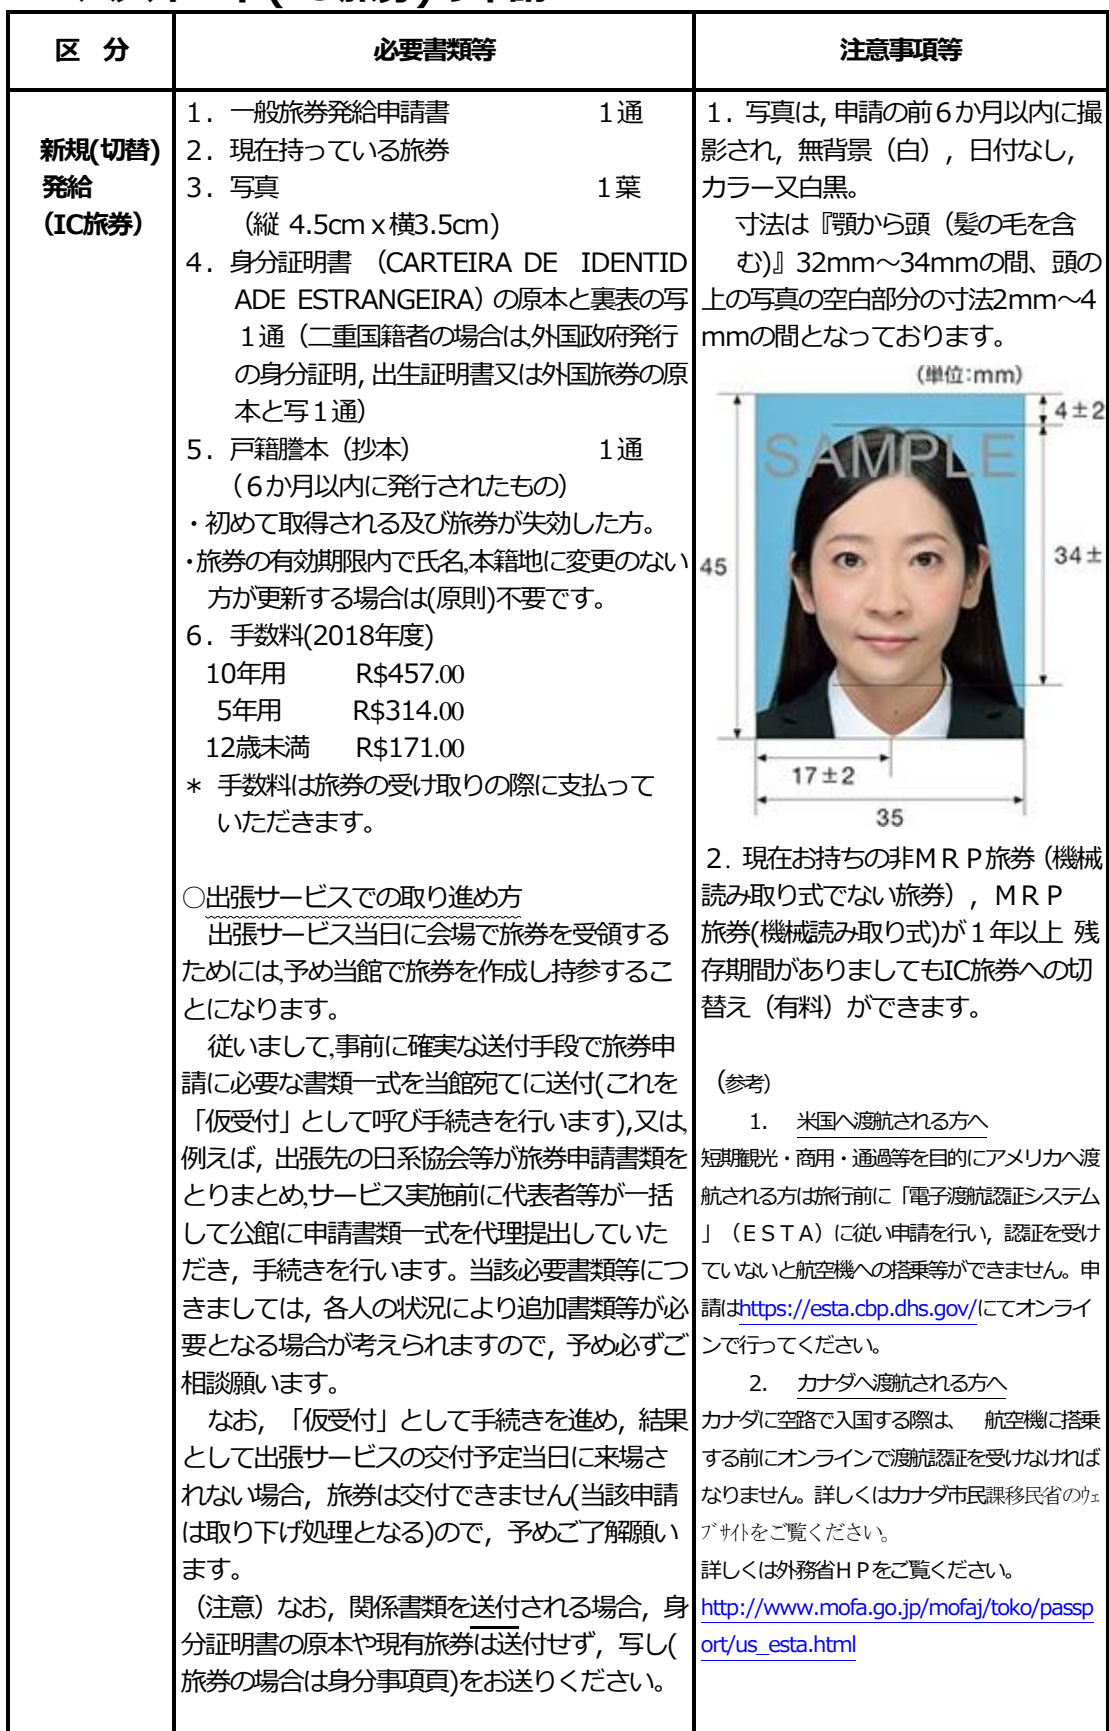 区　分
必要書類等
注意事項等
新規(切替)
発給
（IC旅券）
１．一般旅券発給申請書　１通
２．現在持っている旅券
３．写真　１葉
（縦 4.5cm x 横3.5cm)
４．身分証明書　（CARTEIRA DE　IDENTID
ADE ESTRANGEIRA）の原本と裏表の写
１通（二重国籍者の場合は,外国政府発行
の身分証明，出生証明書又は外国旅券の原
本と写１通）
５．戸籍謄本（抄本）　１通
（６か月以内に発行されたもの）
・初めて取得される及び旅券が失効した方。
・旅券の有効期限内で氏名,本籍地に変更のない
方が更新する場合は(原則)不要です。
６．手数料(2018年度)
10年用　R$457.00
5年用　R$314.00
12歳未満　R$171.00
＊ 手数料は旅券の受け取りの際に支払って
いただきます。
○出張サービスでの取り進め方
出張サービス当日に会場で旅券を受領する
ためには,予め当館で旅券を作成し持参するこ
とになります。
従いまして,事前に確実な送付手段で旅券申
請に必要な書類一式を当館宛てに送付(これを
「仮受付」として呼び手続きを行います),又は,
例えば，出張先の日系協会等が旅券申請書類を
とりまとめ,サービス実施前に代表者等が一括
して公館に申請書類一式を代理提出していた
だき，手続きを行います。当該必要書類等につ
きましては，各人の状況により追加書類等が必
要となる場合が考えられますので，予め必ずご
相談願います。
なお，「仮受付」として手続きを進め，結果
として出張サービスの交付予定当日に来場さ
れない場合，旅券は交付できません(当該申請
は取り下げ処理となる)ので，予めご了解願い
ます。
（注意）なお，関係書類を送付される場合，身
分証明書の原本や現有旅券は送付せず，写し(
旅券の場合は身分事項頁)をお送りください。
１．写真は，申請の前６か月以内に撮
影され，無背景（白），日付なし，
カラー又白黒。
寸法は『顎から頭（髪の毛を含
む)』32mm～34mmの間、頭の
上の写真の空白部分の寸法2mm～4
mmの間となっております。
(単位:mm)
4±2
SAMPLE
45
34±
17±2
35
２．現在お持ちの非ＭＲＰ旅券（機械
読み取り式でない旅券），ＭＲＰ
旅券(機械読み取り式)が１年以上 残
存期間がありましてもIC旅券への切
替え（有料）ができます。
（参考）
1.　米国へ渡航される方へ
短期観光・商用・通過等を目的にアメリカへ渡
航される方は旅行前に「電子渡航認証システム
」（ＥＳＴＡ）に従い申請を行い，認証を受け
ていないと航空機への搭乗等ができません。申
請はhttps://esta.cbp.dhs.gov/にてオンライ
ンで行ってください。
2.　カナダへ渡航される方へ
カナダに空路で入国する際は、　航空機に搭乗
する前にオンラインで渡航認証を受けなければ
なりません。詳しくはカナダ市民課移民省のｳｪ
ﾌﾞｻｲﾄをご覧ください。
詳しくは外務省ＨＰをご覧ください。
http://www.mofa.go.jp/mofaj/toko/passp
ort/us_esta.html